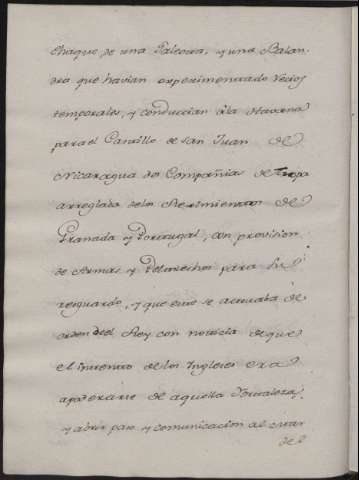 chaque de una Goleta, y una Balan-
dra que havian experimentado recios
temporales, y conducian à la Havana
para el Castillo de San Juan de
Nicaragua dos Compañias de Tropa
arreglada de los Reximientos de
Granada y Portugal, con provision
de Armas, y Petrechos para su
resguardo, y que esto se actuaba de
orden del Rey con noticia de que
el intento de los Ingleses era
apoderarse de aquella Fortaleza,
y abrir paso y comunicacion al mar
del